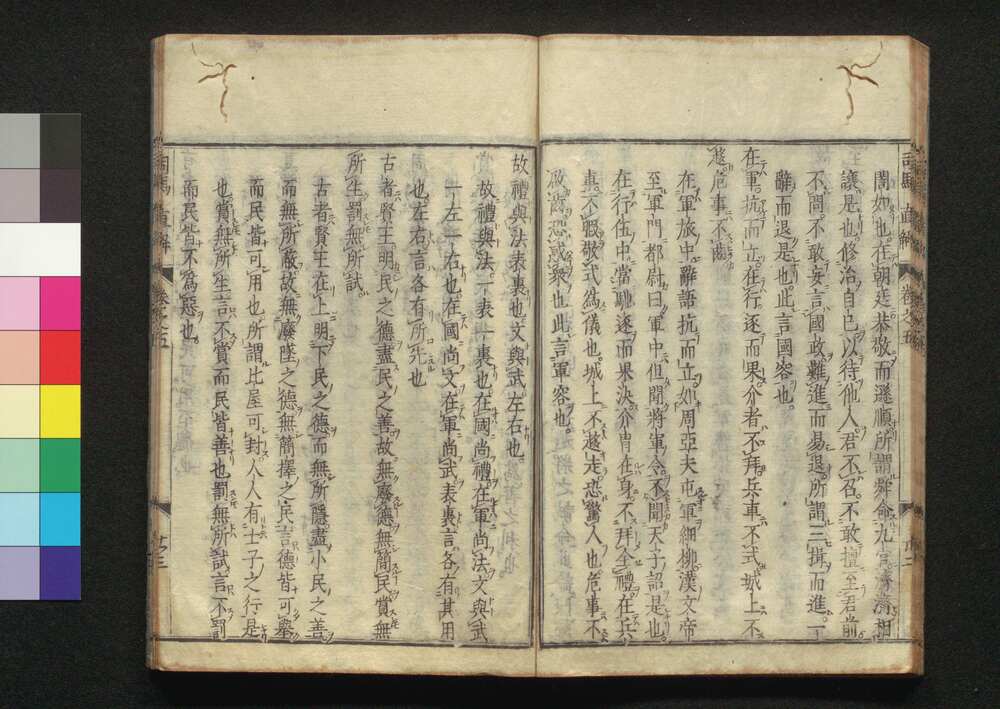 誾如也在朝廷恭敬而遜順所謂舜命九官濟濟相
讓是也修治自己以待他人君不召不敢擅至君前
不問不敢妄言國政難進而易退所謂三揖而進一
辭而退是也此言國容也
在軍抗而立在行逐而果介者不拜兵車不式城上不
趨危事不齒
在軍旅中辭語抗而立如周亞夫屯軍細柳漢文帝
至軍門都尉曰軍中但聞將軍令不聞天子詔是也
在行伍中當馳逐而果決介冑在身不拜全禮在兵
車不暇敬式爲儀也城上不趨走恐驚人也危事不
啟齒恐惑衆也此言軍容也
故禮與法表裏也文與武左右也
故禮與法一表一裏也在國尚禮在軍尚法文與武
一左一右也在國尚文在軍尚武表裏言各有其用
也左右言各有所先也
古者賢王明民之德盡民之善故無廢德無簡民賞無
所生罰無所試
古者賢王在上明下民之德而無所隱盡小民之善
而無所蔽故無廢墜之德無簡擇之民言德皆可舉
而民皆可用也所謂比屋可封人人有士子之行是
也賞無所生言不賞而民皆善也罰無所試言不罰
而民皆不爲惡也